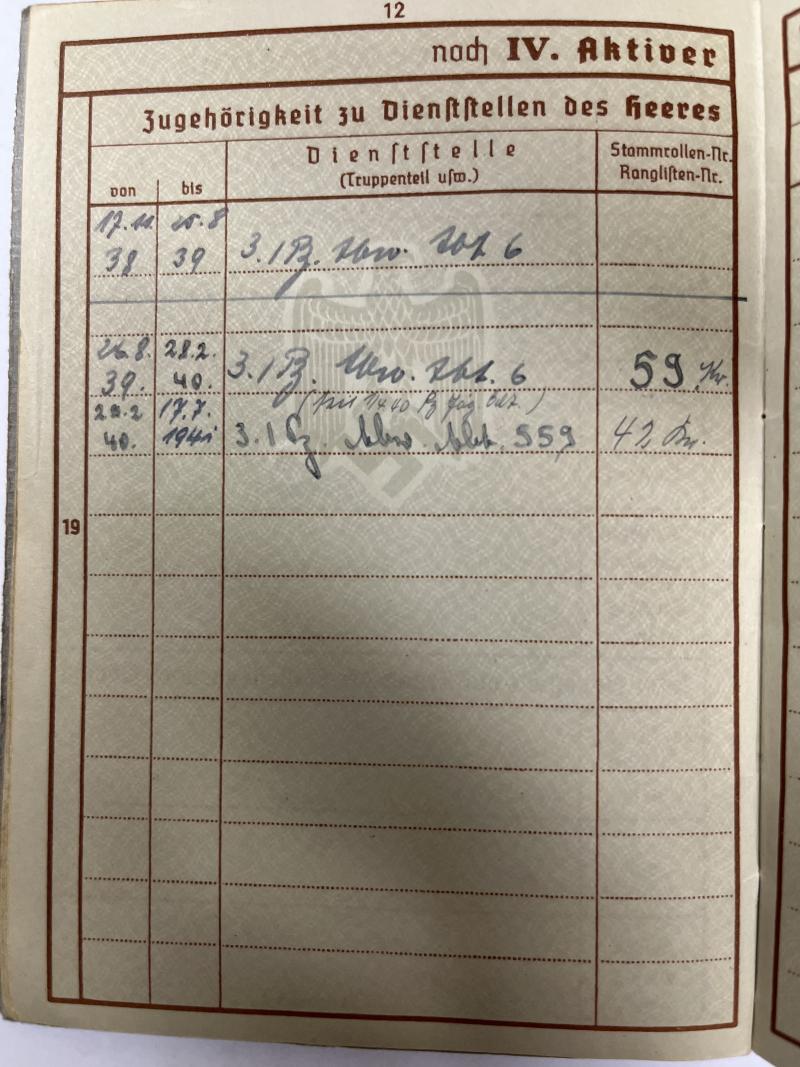 12
noch IV. Aktiver
Zugehörigkeit zu Dienststellen des Heeres
von bis Dienststelle (Truppenteil usw.) Stammrollen-Nr. Ranglisten-Nr.
17.11. 25.8
38 39 3./Pz. Abw. Abt 6
26.8. 28.2.
39. 40. 3./Pz. Abw. Abt. 6 59 Kr.
(seit 1.4.40 Pz Jäg. Abt.)
29.2 17.7.
40. 1941 3./Pz. Abw. Abt. 559 42 Kr.
19